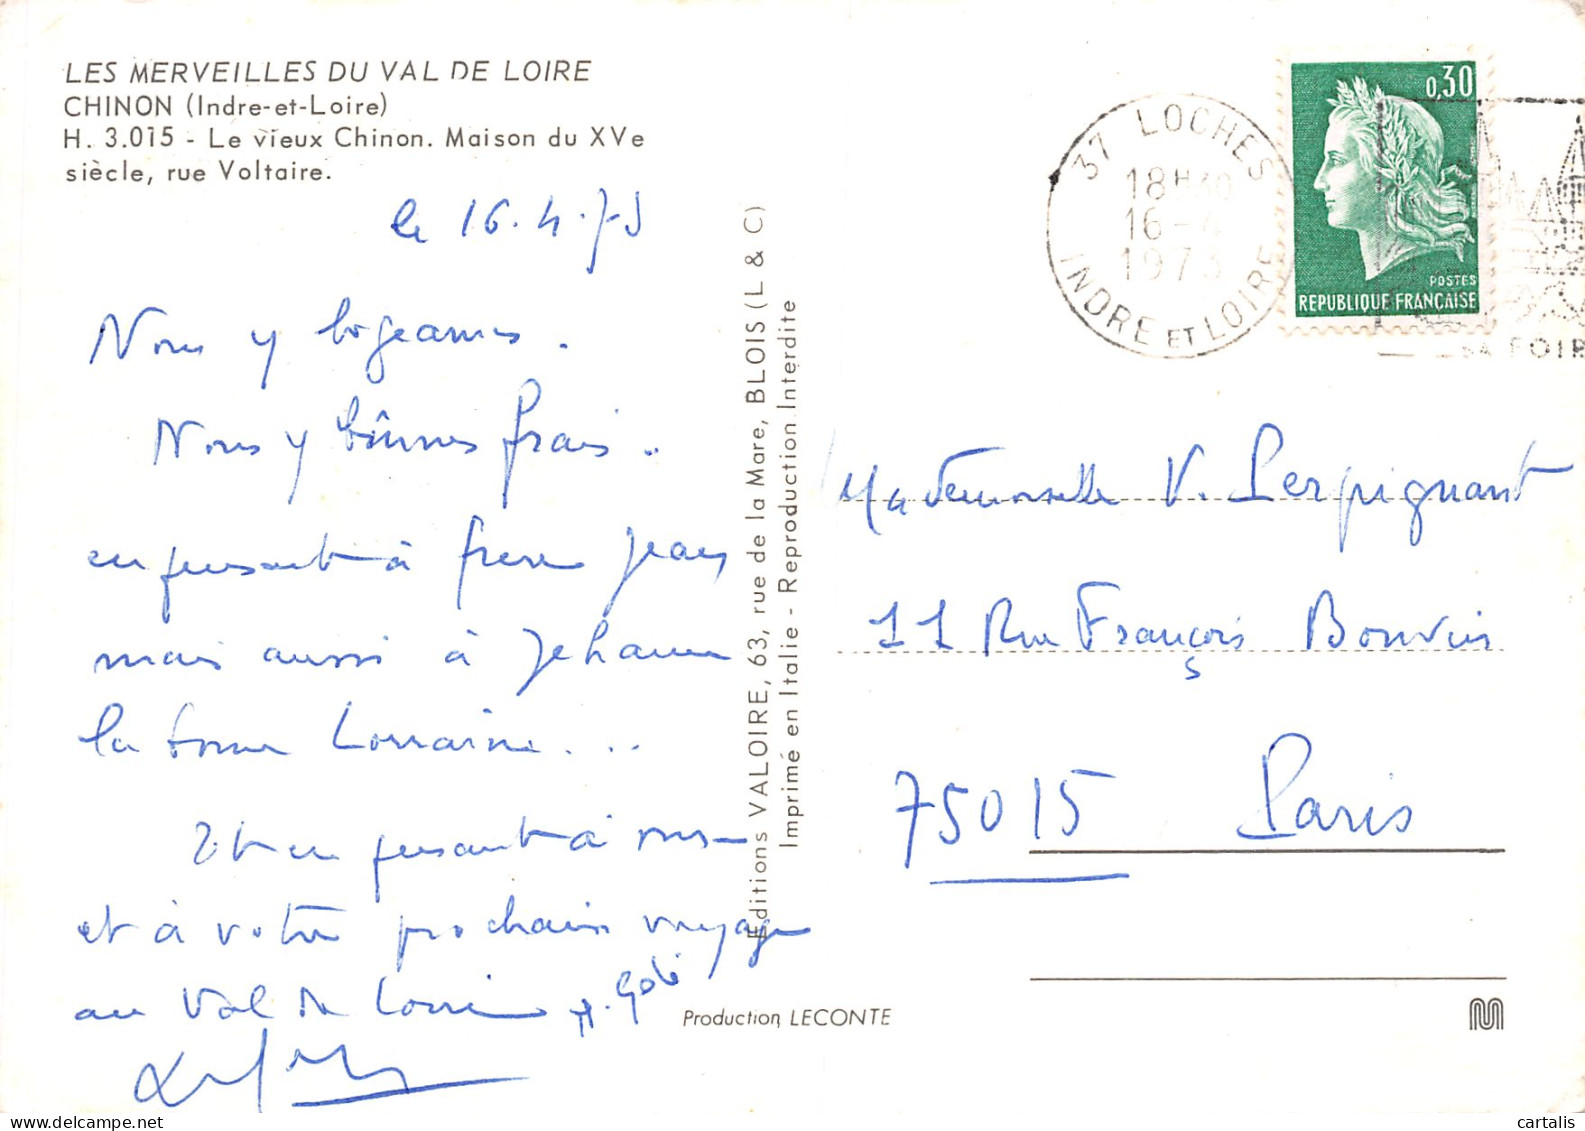 LES MERVEILLES DU VAL DE LOIRE
CHINON (Indre-et-Loire)
H. 3.015 - Le vieux Chinon. Maison du XVe
siècle, rue Voltaire.
le 16.4.73
Nous y logeames.
Nous y bûmes frais..
en pensant à frère Jean
mais aussi à Jehanne
la bonne Lorraine...
Et en pensant à vous
et à votre prochain voyage
au Val de Loire
Editions VALOIRE, 63, rue de la Mare, BLOIS (L & C)
Imprimé en Italie - Reproduction Interdite
Production LECONTE
37 LOCHES
18H30
16-4
1973
INDRE ET LOIRE
0,30
POSTES
REPUBLIQUE FRANÇAISE
SA FOIR
Mademoiselle V. Perpignant
11 Rue François Bonvin
75015 Paris
cartalis